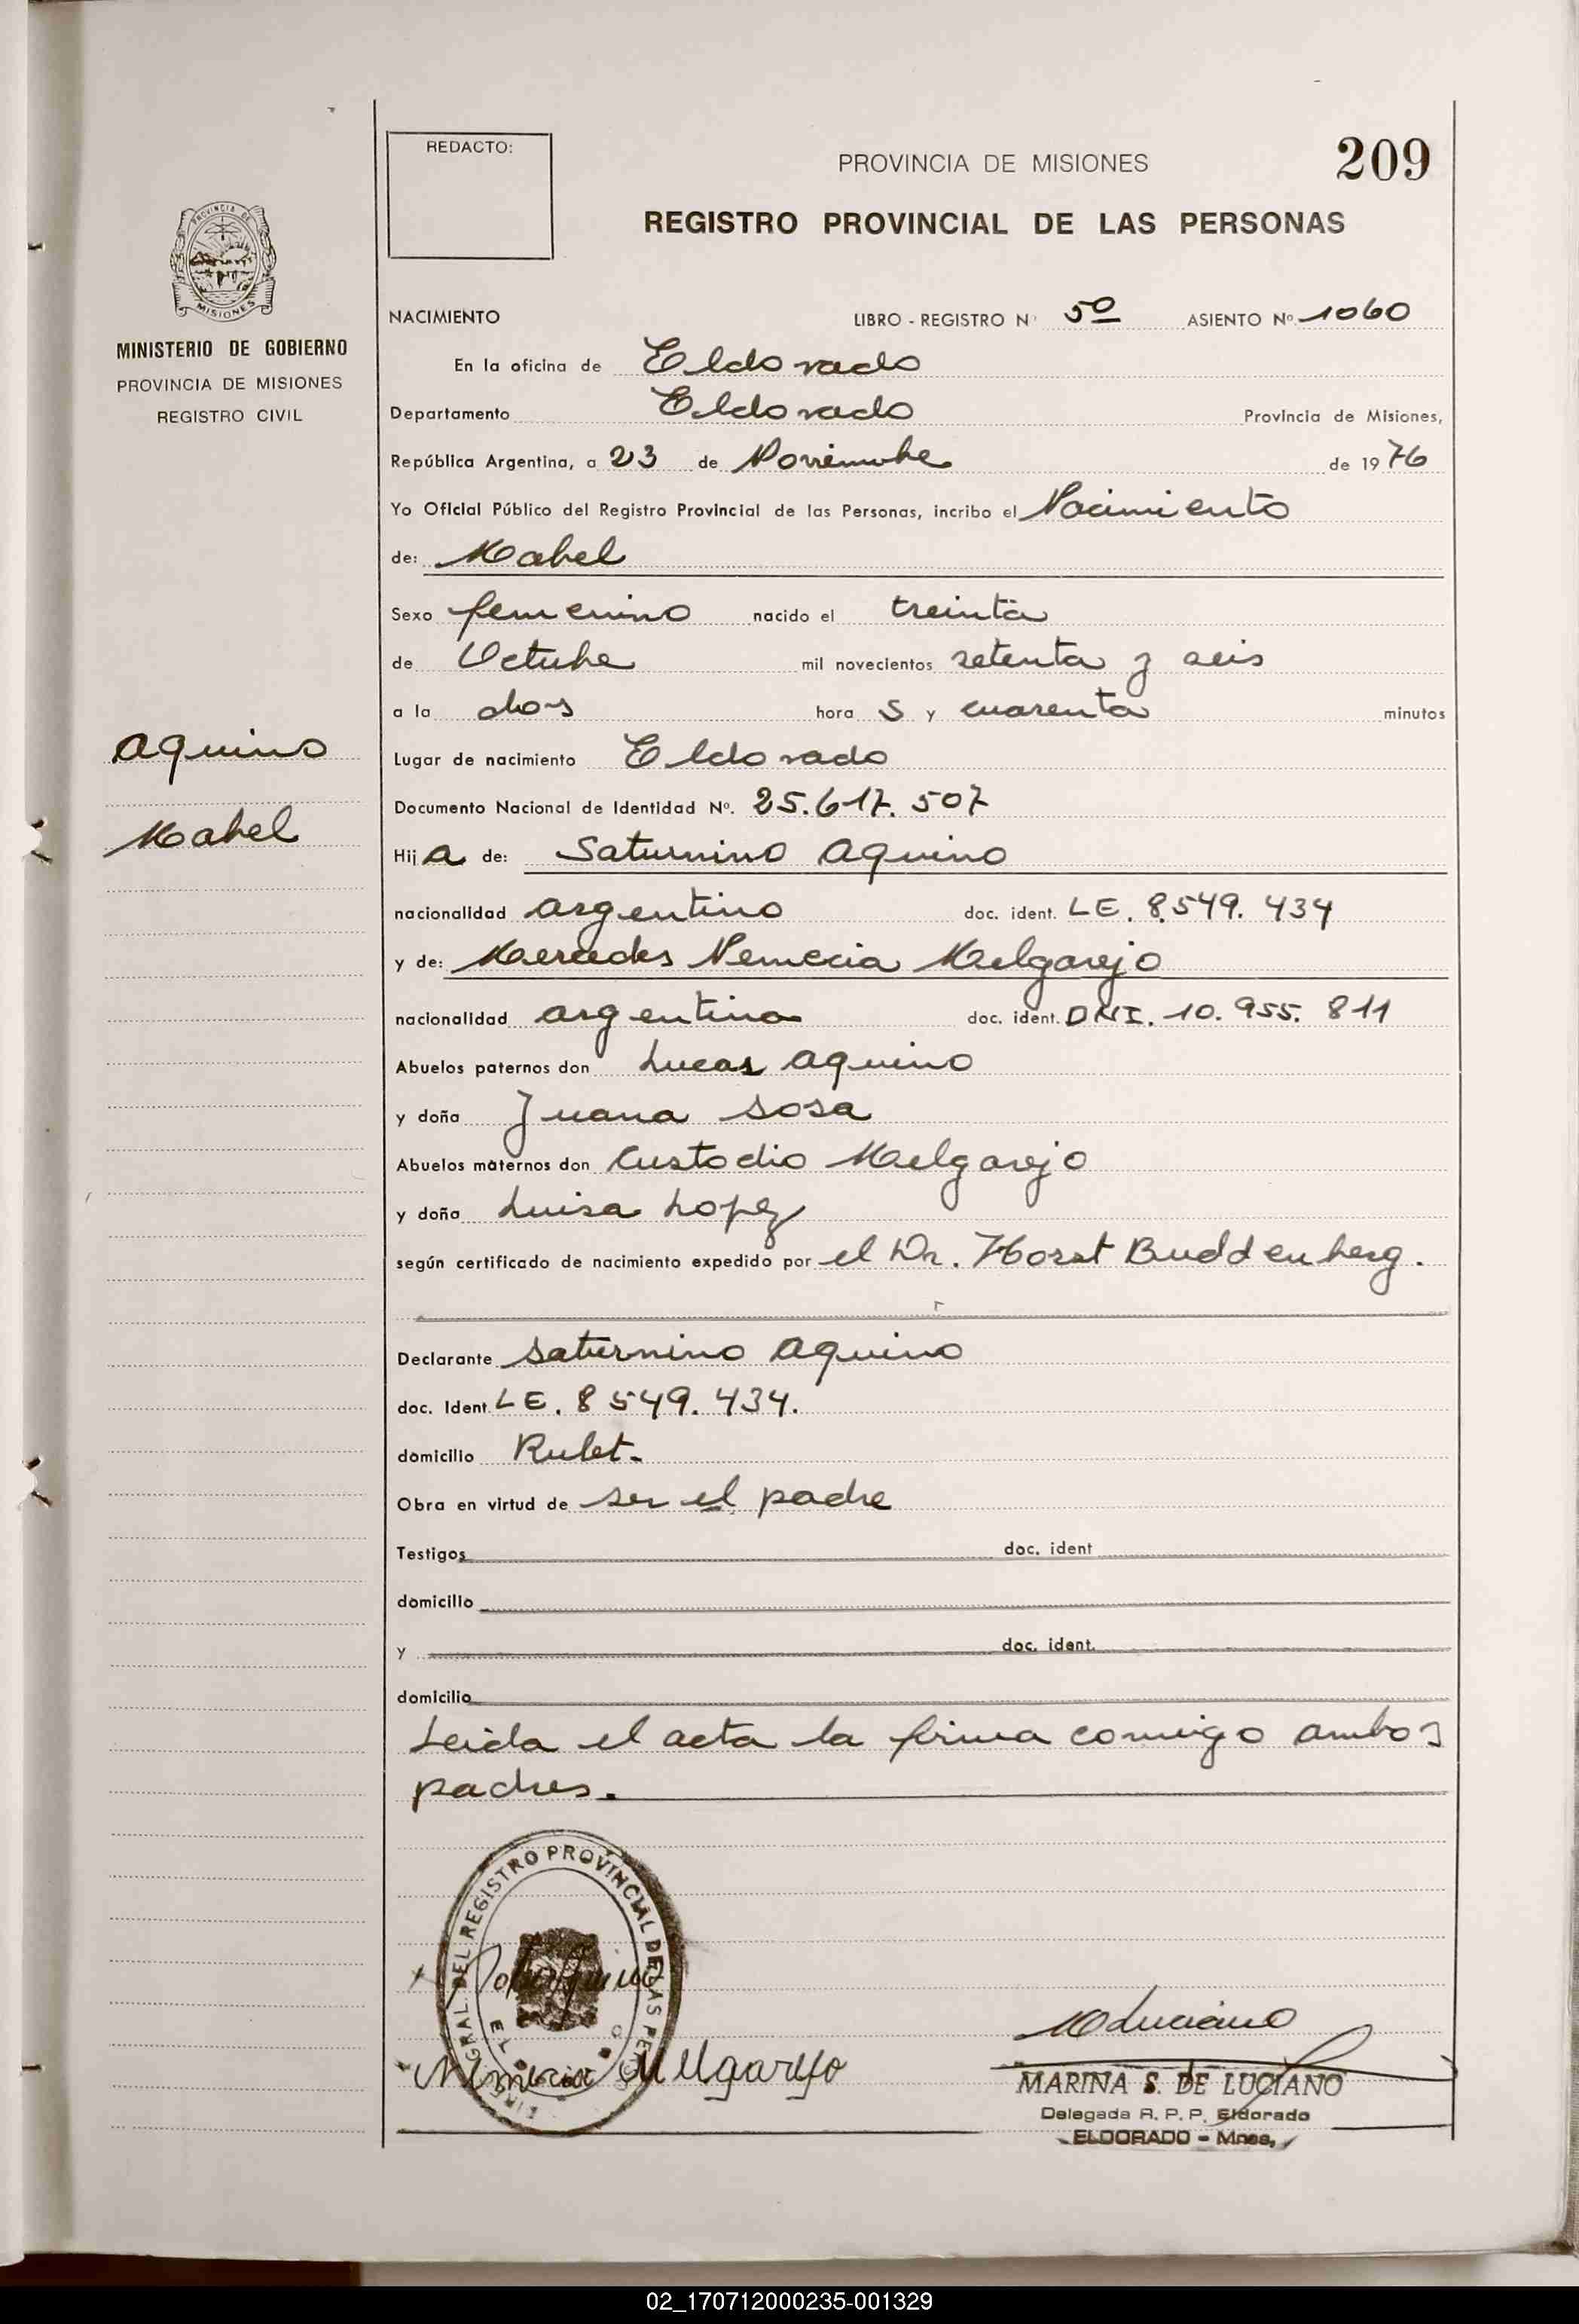 REDACTO:
PROVINCIA DE MISIONES
209
REGISTRO PROVINCIAL DE LAS PERSONAS
PROVINCIA DE
MISIONES
MINISTERIO DE GOBIERNO
PROVINCIA DE MISIONES
REGISTRO CIVIL
NACIMIENTO LIBRO - REGISTRO Nº 5º ASIENTO Nº 1060
En la oficina de Eldorado
Departamento Eldorado Provincia de Misiones,
República Argentina, a 23 de Noviembre de 1976
Yo Oficial Público del Registro Provincial de las Personas, incribo el Nacimiento
de: Mabel
Sexo femenino nacido el treinta
de Octubre mil novecientos setenta y seis
a la dos hora s y cuarenta minutos
Aquino
Lugar de nacimiento Eldorado
Documento Nacional de Identidad Nº. 25.617.507
Mabel
Hij a de: Saturnino Aquino
nacionalidad argentino doc. ident. LE. 8.549.434
y de: Mercedes Nemecia Melgarejo
nacionalidad argentina doc. ident. DNI. 10.955.811
Abuelos paternos don Lucas Aquino
y doña Juana Sosa
Abuelos maternos don Custodio Melgarejo
y doña Luisa Lopez
según certificado de nacimiento expedido por el Dr. Horst Buddenberg.
Declarante Saturnino Aquino
doc. Ident. LE. 8549.434.
domicilio Rulet.
Obra en virtud de ser el padre
Testigos doc. ident
domicilio
y doc. ident.
domicilio
Leida el acta la firma conmigo ambos
padres.
GRAL. DEL REGISTRO PROVINCIAL DE LAS
Melgarejo
MLuciano
MARINA S. DE LUCIANO
Delegada R. P. P. Eldorado
ELDORADO - Mnes.
02_170712000235-001329